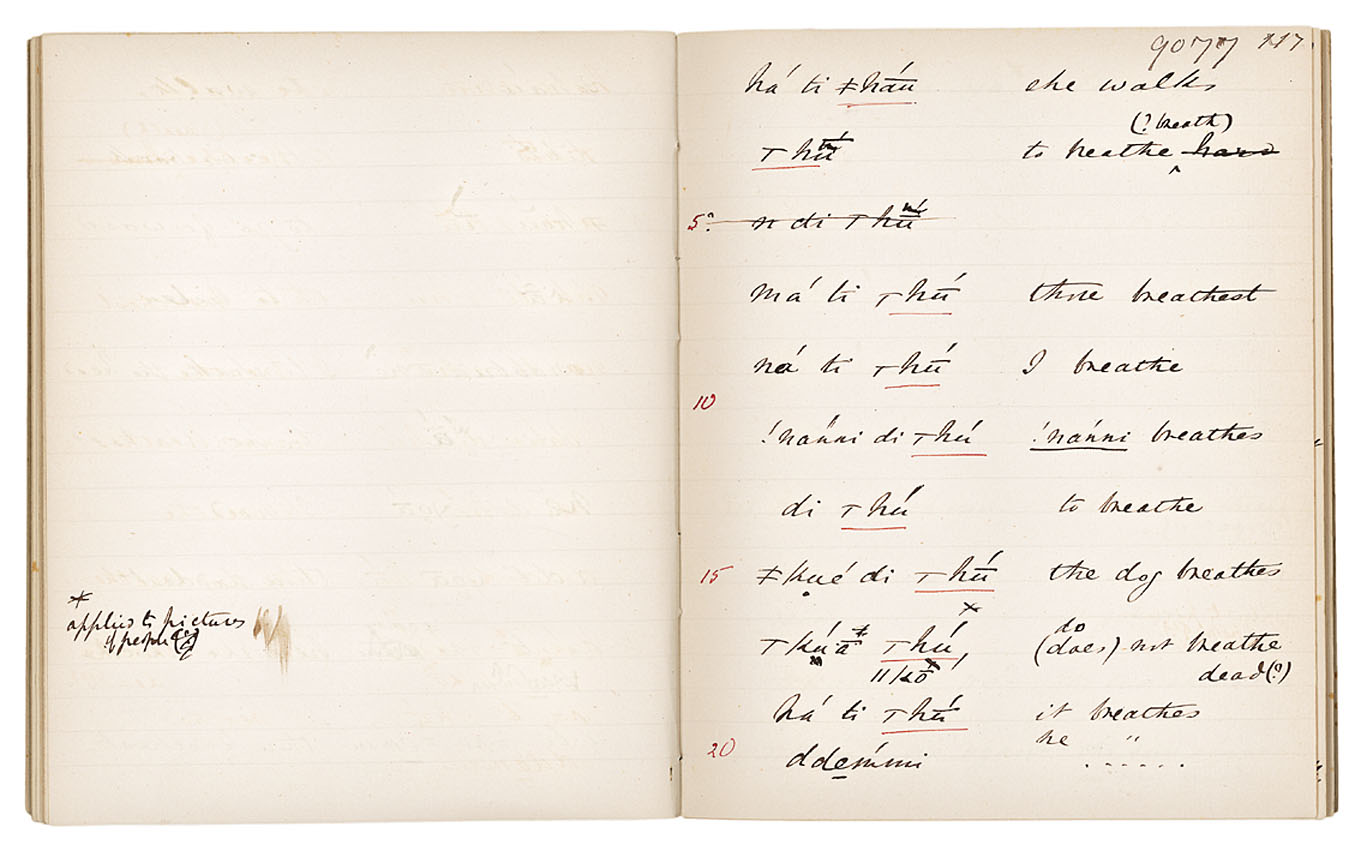 *
applies to pictures
of people (?)
9077 117
há ti ǂháū she walks
(? breath)
⊤ hú to breathe ^ hard
5? n di ⊤ hú
má ti ⊤ hú thou breathest
ná ti ⊤ hú I breathe
10
!naṅni di ⊤ hú !naṅni breathes
di ⊤ hú to breathe
15 ǂkué di ⊤ hú the dog breathes
⊤ kú ā* ⊤ hú, (does) do not breathe
ǁkō dead (?)
há ti ⊤ hú it breathes
he "
20 ddemmi . . . . . .